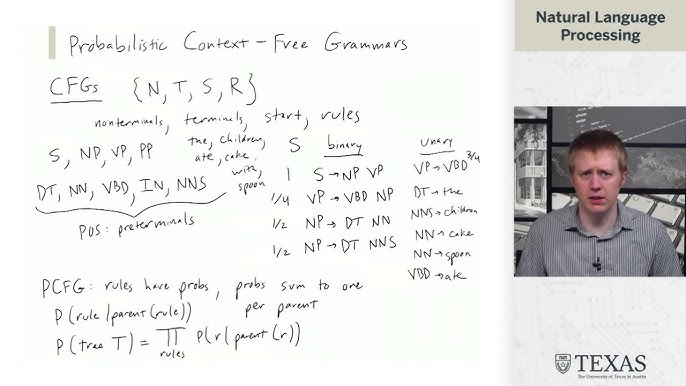 Probabilistic Context-Free Grammars
CFGs {N, T, S, R}
nonterminals, terminals, start, rules
S, NP, VP, PP
the, children,
ate, cake,
with,
spoon
S
DT, NN, VBD, IN, NNS
POS: preterminals
binary
1 S→NP VP
1/4 VP→VBD NP
1/2 NP→DT NN
1/2 NP→DT NNS
unary
VP→VBD 3/4
DT→the
NNS→children
NN→cake
NN→spoon
VBD→ate
PCFG: rules have probs, probs sum to one
per parent
P(rule|parent(rule))
P(tree T) = ∏ P(r|parent(r))
rules
Natural Language
Processing
TEXAS
The University of Texas at Austin